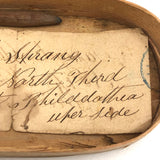 Strang
North Third
Philddathia
uper side